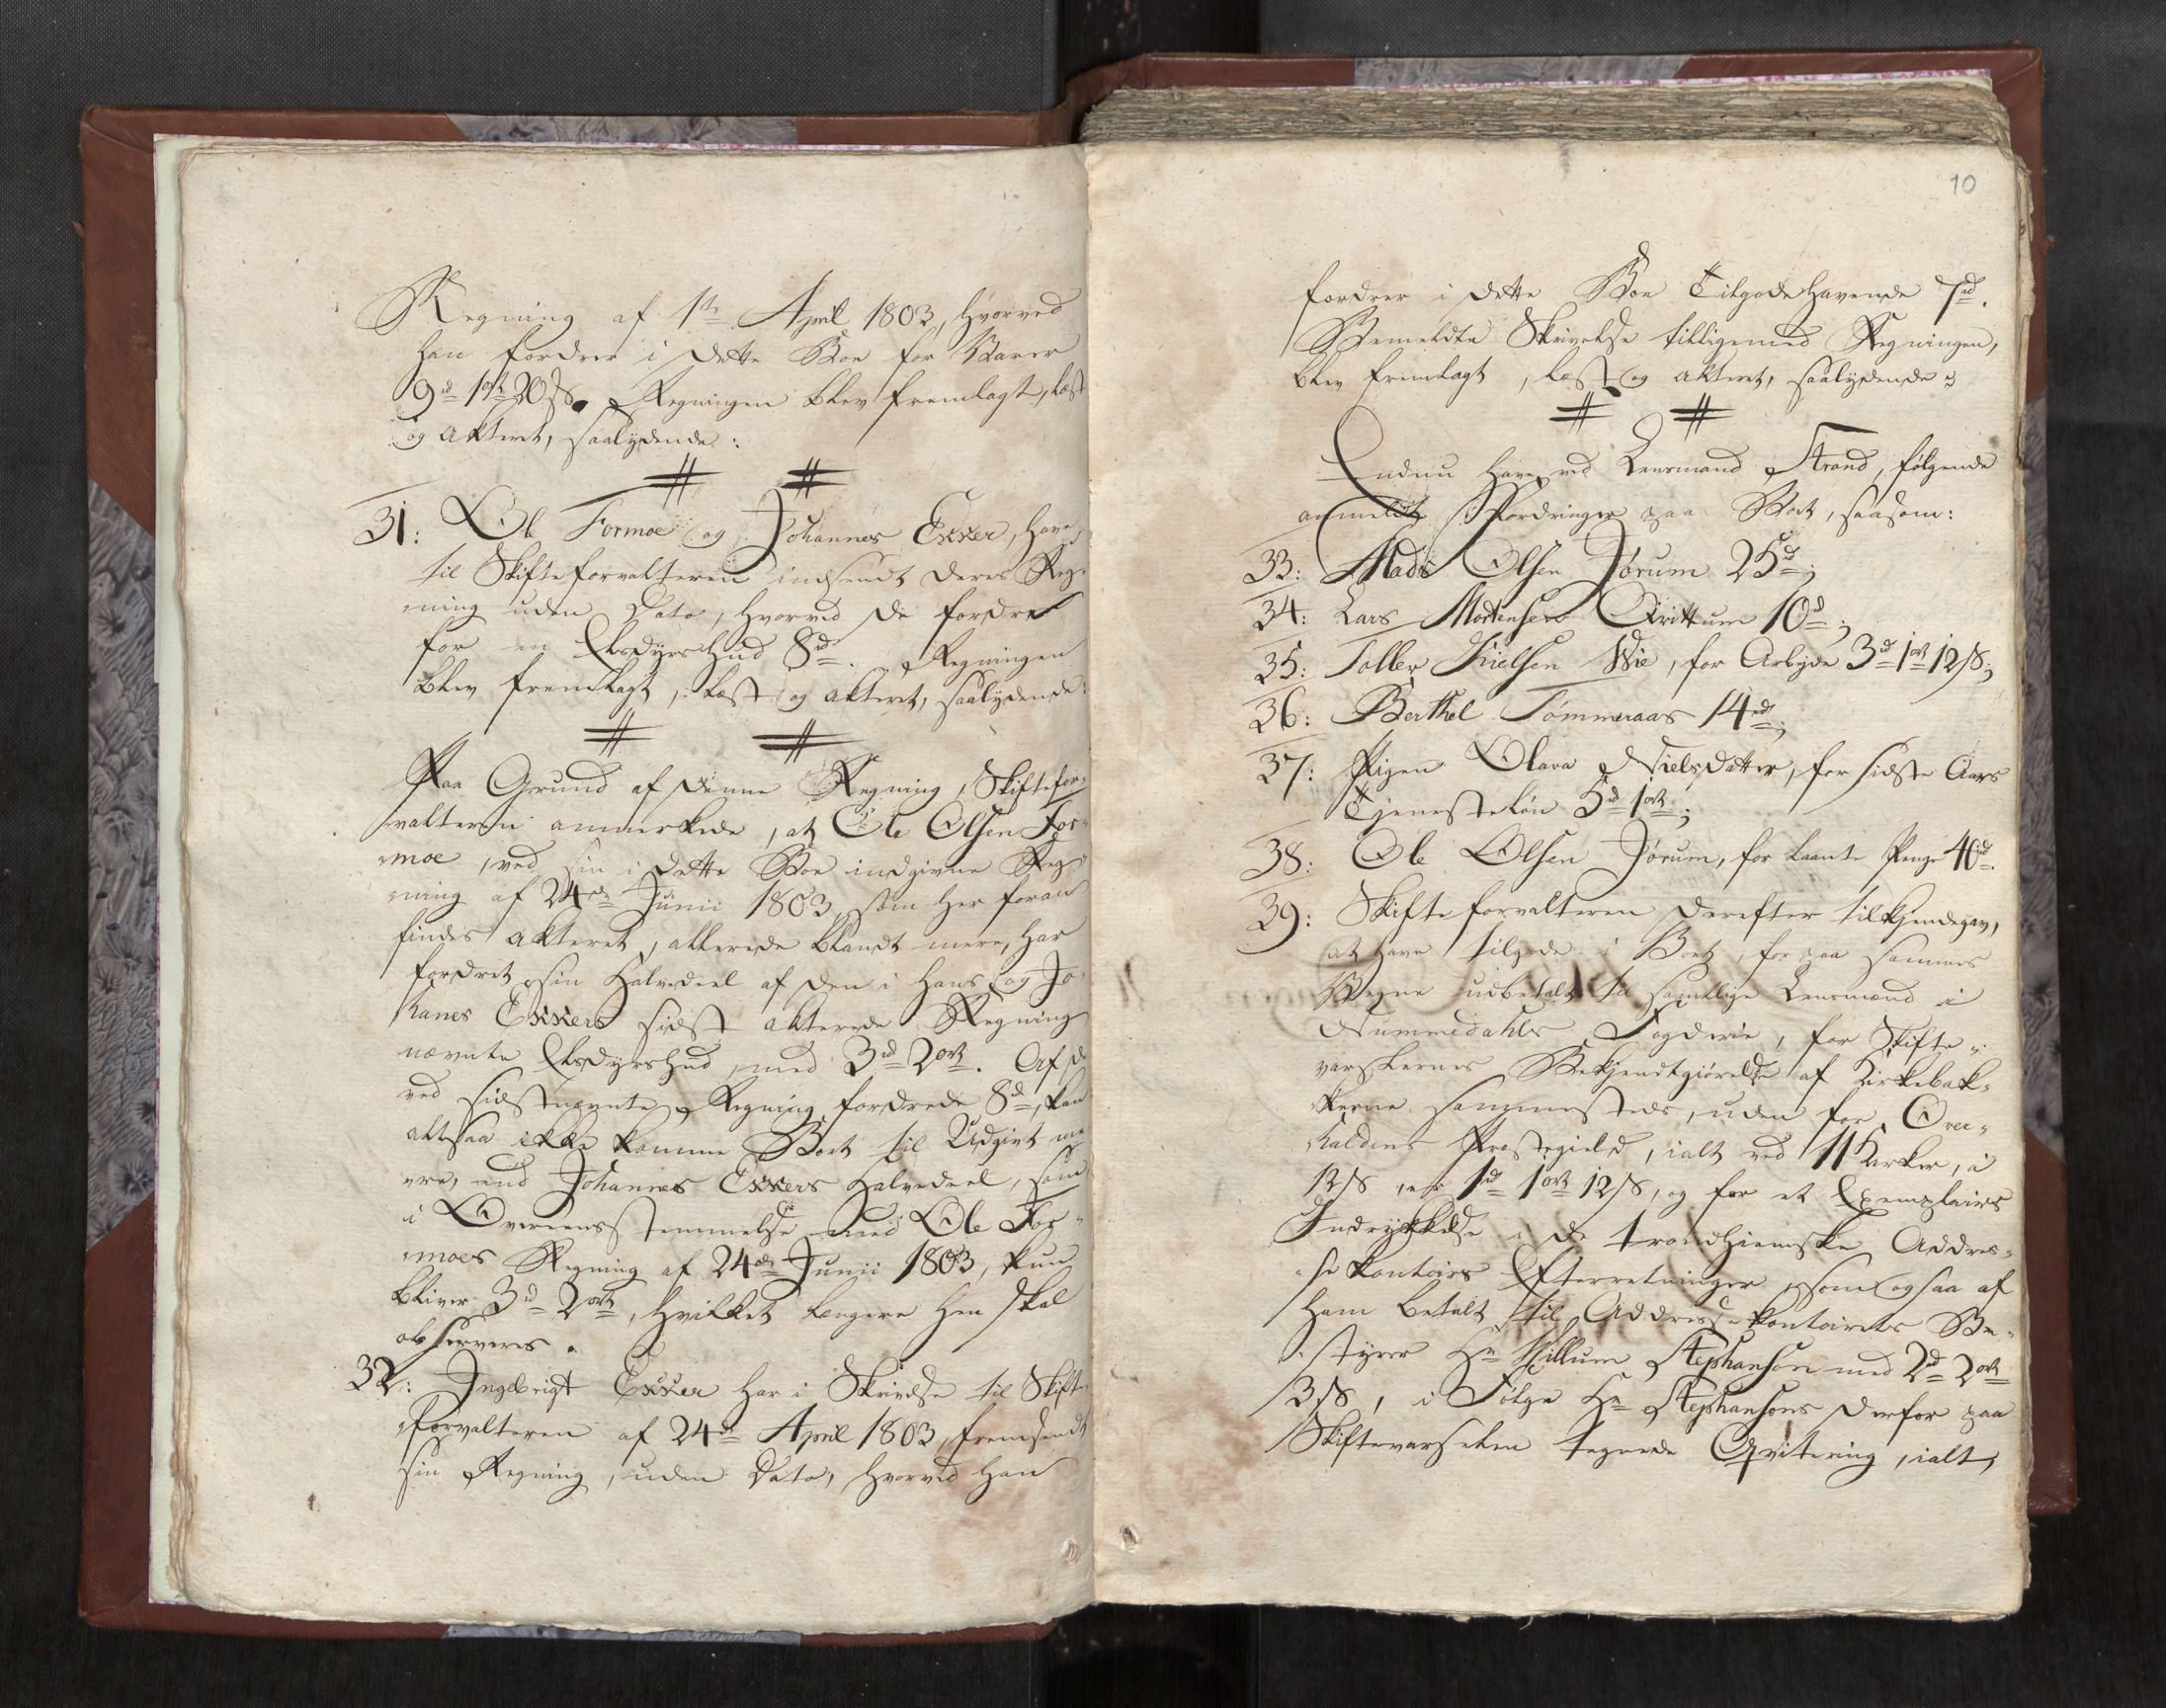 Regning af 1ste April 1803, hvorved
han fordrer i dette Boe for Varer
9rd 1ort 20 s. Regningen blev fremlagt, læst
og akteret, saalydende:
31: Ole Formoe og Johannes Exxer, have
til Skifteforvalteren indsendt deres Reg-
ning uden Dato, hvorved de fordrer
for en Elsdyrshud 8rd. Regningen
blev fremlagt, læst og akteret, saalydende:
Paa Grund af denne Regning, Skiftefor-
valteren anmerkede, at Ole Olsen For-
moe, ved sin i dette Boe indgivne Reg-
ning af 24de Junii 1803, som her foran
findes akteret, allerede blandt mere, har
fordret sin Halvedeel af den i hans og Jo-
hanes Exxers sidst akterede Regning
nævnte Elsdyrshud, med 3rd 2ort. Af de
ved sidstnævnte Regning fordrede 8rd, kan
altsaa ikke komme Boet til Udgivt me
ere, end Johannes Exxers Halvedeel, som
i Overeensstemmelse med Ole For-
moes Regning af 24de Junii 1803, kun
bliver 3rd 2ort, hvilket længere hen skal
observeres.
32: Ingebrigt Exxer har i Skrivelse til Skifte-
forvalteren af 24de April 1803, fremsendt
sin Regning, uden Dato, hvorved han
10
fordrer i dette Boe Tilgodehavende 7rd.
Bemeldte Skrivelse tilligemed Regningen,
blev fremlagt, læst og akteret, saalydende:
Endnu have ved Lensmand Strand, følgende
anmeldt Fordringer paa Boet, saasom:
33: Mads Olsen Jørum 25rd;
34: Lars Mortensen Qvittum 10rd;
35: Toller Nielsen Wie, for Arbejde 3rd 1ort 12 s;
36: Berthel Tømmeraas 14rd;
37: Pigen Olava Nielsdatter, for sidste Aars
Tjenesteløn 5rd 1ort;
38: Ole Olsen Jørum, for laante Penge 40rd.
39: Skifteforvalteren derefter tilkjendegav,
at have tilgode i Boet, for paa sammes
Vegne udbetalt til samtlige Lensmænd i
Nummedahls Fogderie, for Skifte-
varslernes Bekjendtgiørelse af Kirkebak-
kerne sammesteds, uden for Over-
haldens Præstegield, ialt ved 11 Kirker, á
12 s, er 1rd 1ort 12 s, og for et Exemplairs
Indrykkelse i de trondhiemske Addres-
se kontoirs Efterretninger, som ogsaa af
ham betalt til Addresse kontoirets Be-
styrer Hr Hillum Stephanson med 2rd 2ort
3 s, i Følge Hr Stephansons derfor paa
Skiftevarselen tegnede Qvitering, ialt